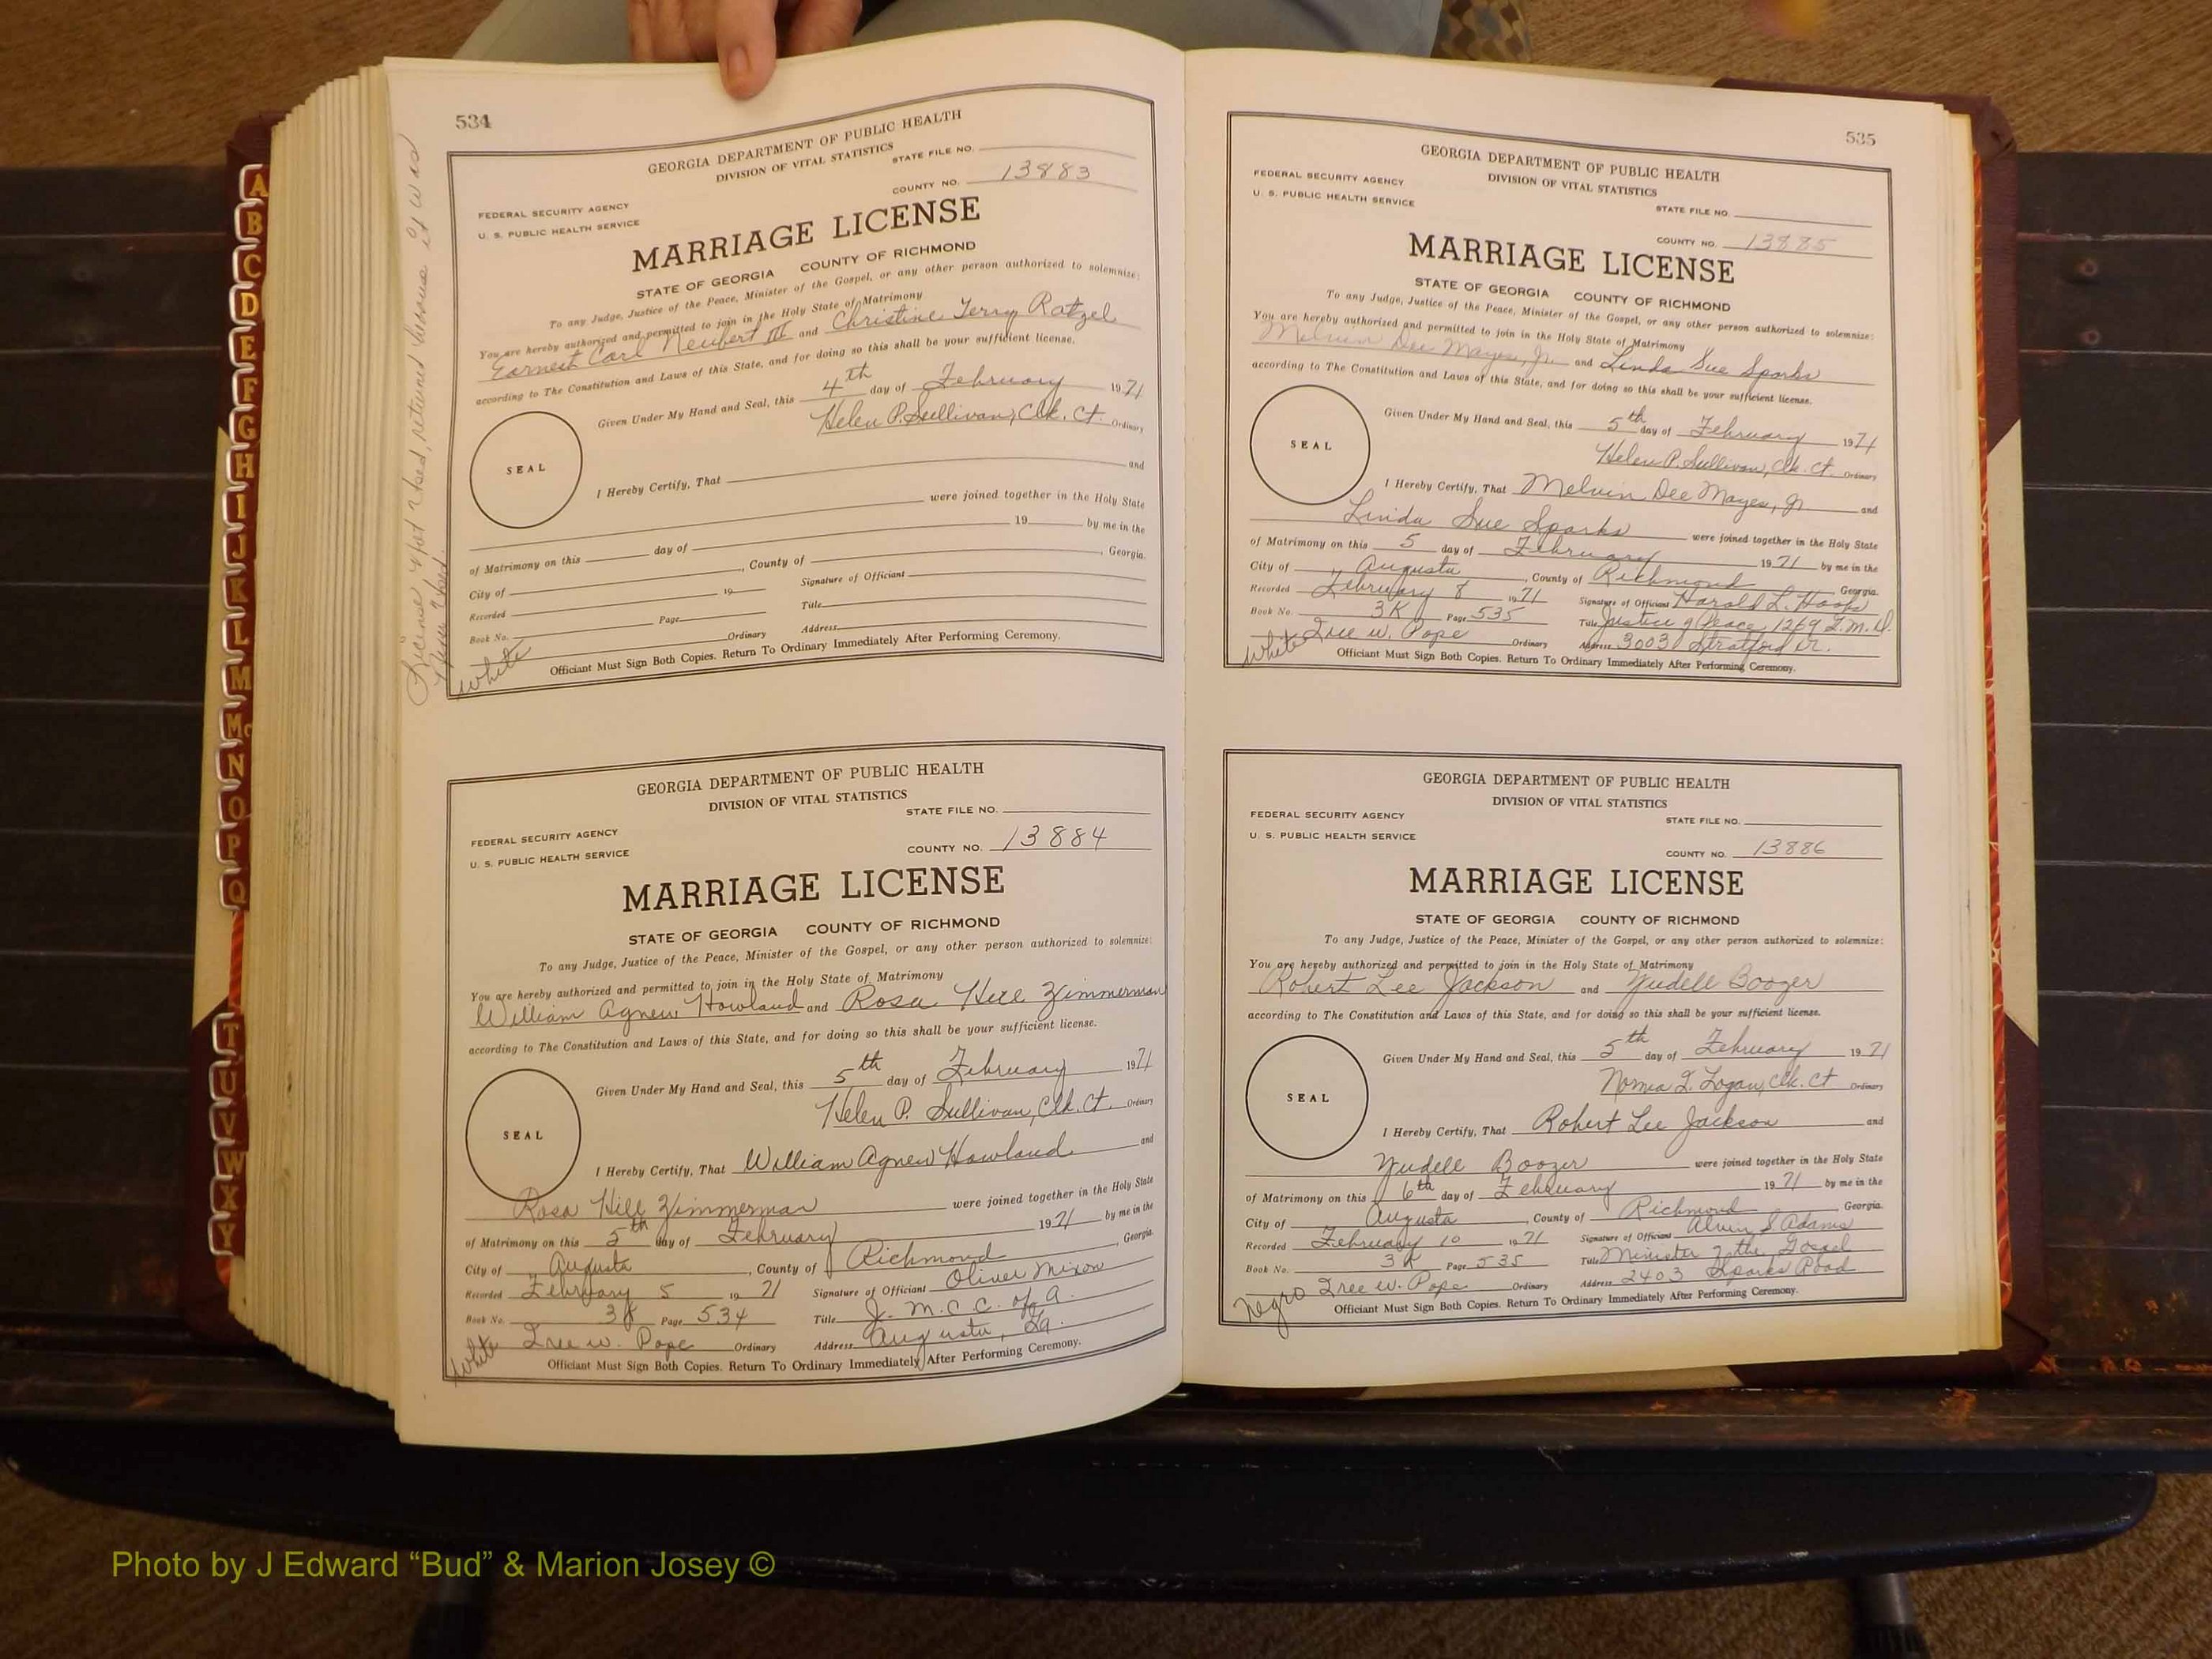 534
License not used, returned because it was
GEORGIA DEPARTMENT OF PUBLIC HEALTH
DIVISION OF VITAL STATISTICS
STATE FILE NO.
COUNTY NO. 13883
FEDERAL SECURITY AGENCY
U. S. PUBLIC HEALTH SERVICE
MARRIAGE LICENSE
STATE OF GEORGIA COUNTY OF RICHMOND
To any Judge, Justice of the Peace, Minister of the Gospel, or any other person authorized to solemnize:
You are hereby authorized and permitted to join in the Holy State of Matrimony
Earnest Carl Neubert III and Christine Terry Ratzel
according to The Constitution and Laws of this State, and for doing so this shall be your sufficient license.
Given Under My Hand and Seal, this 4th day of February 1971
Helen P. Sullivan, Clk. Ct. Ordinary
SEAL
I Hereby Certify, That and
were joined together in the Holy State
of Matrimony on this day of 19 by me in the
City of , County of , Georgia.
Recorded 19 Signature of Officiant
Book No. Page Title
Ordinary Address
white
Officiant Must Sign Both Copies. Return To Ordinary Immediately After Performing Ceremony.
GEORGIA DEPARTMENT OF PUBLIC HEALTH
DIVISION OF VITAL STATISTICS
STATE FILE NO.
FEDERAL SECURITY AGENCY
U. S. PUBLIC HEALTH SERVICE
COUNTY NO. 13884
MARRIAGE LICENSE
STATE OF GEORGIA COUNTY OF RICHMOND
To any Judge, Justice of the Peace, Minister of the Gospel, or any other person authorized to solemnize:
You are hereby authorized and permitted to join in the Holy State of Matrimony
William Agnew Howland and Rosa Hill Zimmerman
according to The Constitution and Laws of this State, and for doing so this shall be your sufficient license.
Given Under My Hand and Seal, this 5th day of February 1971
Helen P. Sullivan, Clk. Ct. Ordinary
SEAL
I Hereby Certify, That William Agnew Howland and
Rosa Hill Zimmerman were joined together in the Holy State
of Matrimony on this 5th day of February 1971 by me in the
City of Augusta , County of Richmond , Georgia.
Recorded February 5 19 71 Signature of Officiant Oliver Mixon
Book No. 3K Page 534 Title J. M.C.C. of A.
white Ordinary Address Augusta, Ga.
W. Pope
Officiant Must Sign Both Copies. Return To Ordinary Immediately After Performing Ceremony.
535
GEORGIA DEPARTMENT OF PUBLIC HEALTH
DIVISION OF VITAL STATISTICS
FEDERAL SECURITY AGENCY
U. S. PUBLIC HEALTH SERVICE
STATE FILE NO.
COUNTY NO. 13885
MARRIAGE LICENSE
STATE OF GEORGIA COUNTY OF RICHMOND
To any Judge, Justice of the Peace, Minister of the Gospel, or any other person authorized to solemnize:
You are hereby authorized and permitted to join in the Holy State of Matrimony
Melvin Dee Mayes, Jr. and Linda Sue Sparks
according to The Constitution and Laws of this State, and for doing so this shall be your sufficient license.
Given Under My Hand and Seal, this 5th day of February 1971
Helen P. Sullivan, Clk. Ct. Ordinary
SEAL
I Hereby Certify, That Melvin Dee Mayes, Jr. and
Linda Sue Sparks were joined together in the Holy State
of Matrimony on this 5 day of February 1971 by me in the
City of Augusta , County of Richmond Georgia.
Recorded February 8 19 71 Signature of Officiant Harold L.
Book No. 3K Page 535 Title Justice of Peace 1269 G.M.D.
white W. Pope Ordinary Address 3003 Stratford Dr.
Officiant Must Sign Both Copies. Return To Ordinary Immediately After Performing Ceremony.
GEORGIA DEPARTMENT OF PUBLIC HEALTH
DIVISION OF VITAL STATISTICS
FEDERAL SECURITY AGENCY
U. S. PUBLIC HEALTH SERVICE
STATE FILE NO.
COUNTY NO. 13886
MARRIAGE LICENSE
STATE OF GEORGIA COUNTY OF RICHMOND
To any Judge, Justice of the Peace, Minister of the Gospel, or any other person authorized to solemnize:
You are hereby authorized and permitted to join in the Holy State of Matrimony
Robert Lee Jackson and Yudell Boozer
according to The Constitution and Laws of this State, and for doing so this shall be your sufficient license.
Given Under My Hand and Seal, this 5th day of February 1971
Logan, Clk. Ct Ordinary
SEAL
I Hereby Certify, That Robert Lee Jackson and
Yudell Boozer were joined together in the Holy State
of Matrimony on this 6th day of February 1971 by me in the
City of Augusta , County of Richmond Georgia.
Recorded February 10 19 71 Signature of Officiant Alvin S. Adams
Book No. 3K Page 535 Title Minister of the Gospel
Negro W. Pope Ordinary Address 2403 Road
Officiant Must Sign Both Copies. Return To Ordinary Immediately After Performing Ceremony.
A
B
C
D
E
F
G
H
I
J
K
L
M
Mc
N
O
P
Q
T
U
V
W
X
Y
Photo by J Edward “Bud” & Marion Josey ©